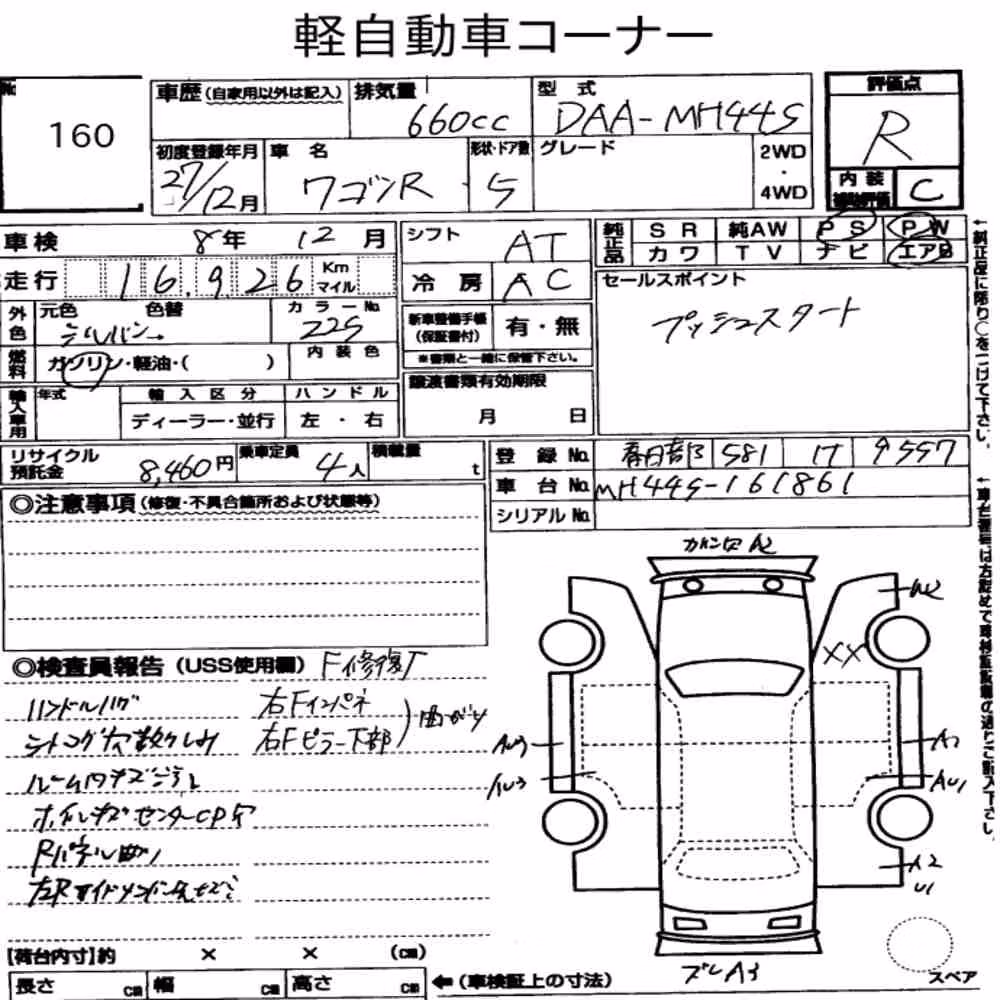 軽自動車コーナー
No. 160
車歴(自家用以外は記入)
排気量 660cc
型式 DAA-MH44S
評価点 R
初度登録年月 27/12月
車名 ワゴンR
形状・ドア数 5
グレード
2WD・4WD
内装補助評価 C
車検 8年 12月
シフト AT
純正品 SR 純AW PS PW
カワ TV ナビ エアB
走行 16,926 Km マイル
冷房 AC
セールスポイント
プッシュスタート
外色 元色 色替
シルバー
カラーNo. Z2S
新車整備手帳(保証書付) 有・無
※書類と一緒に保管下さい。
燃料 ガソリン・軽油・( )
内装色
譲渡書類有効期限
月 日
輸入車用 年式 輸入区分 ハンドル
ディーラー・並行 左・右
リサイクル預託金 8,460円
乗車定員 4人
積載量 t
登録No. 春日部 581 け 9557
車台No. MH44S-161861
シリアルNo.
◎注意事項(修復・不具合箇所および状態等)
◎検査員報告(USS使用欄) F修復了
ハンドルハゲ 右Fインパネ
右Fピラー下部 )曲がり
ルーム内キズ
ホイルキズ センターCP
Rパネル曲り
A2
A2
XX
AU3
A1
AU3
AU1
A2
U1
A3
スペア
[荷台内寸]約 × × (cm)
長さ cm 幅 cm 高さ cm
←(車検証上の寸法)
←純正品に限り○をつけて下さい。
←車台番号は方詰めで車検証記載の通りご記入下さい。